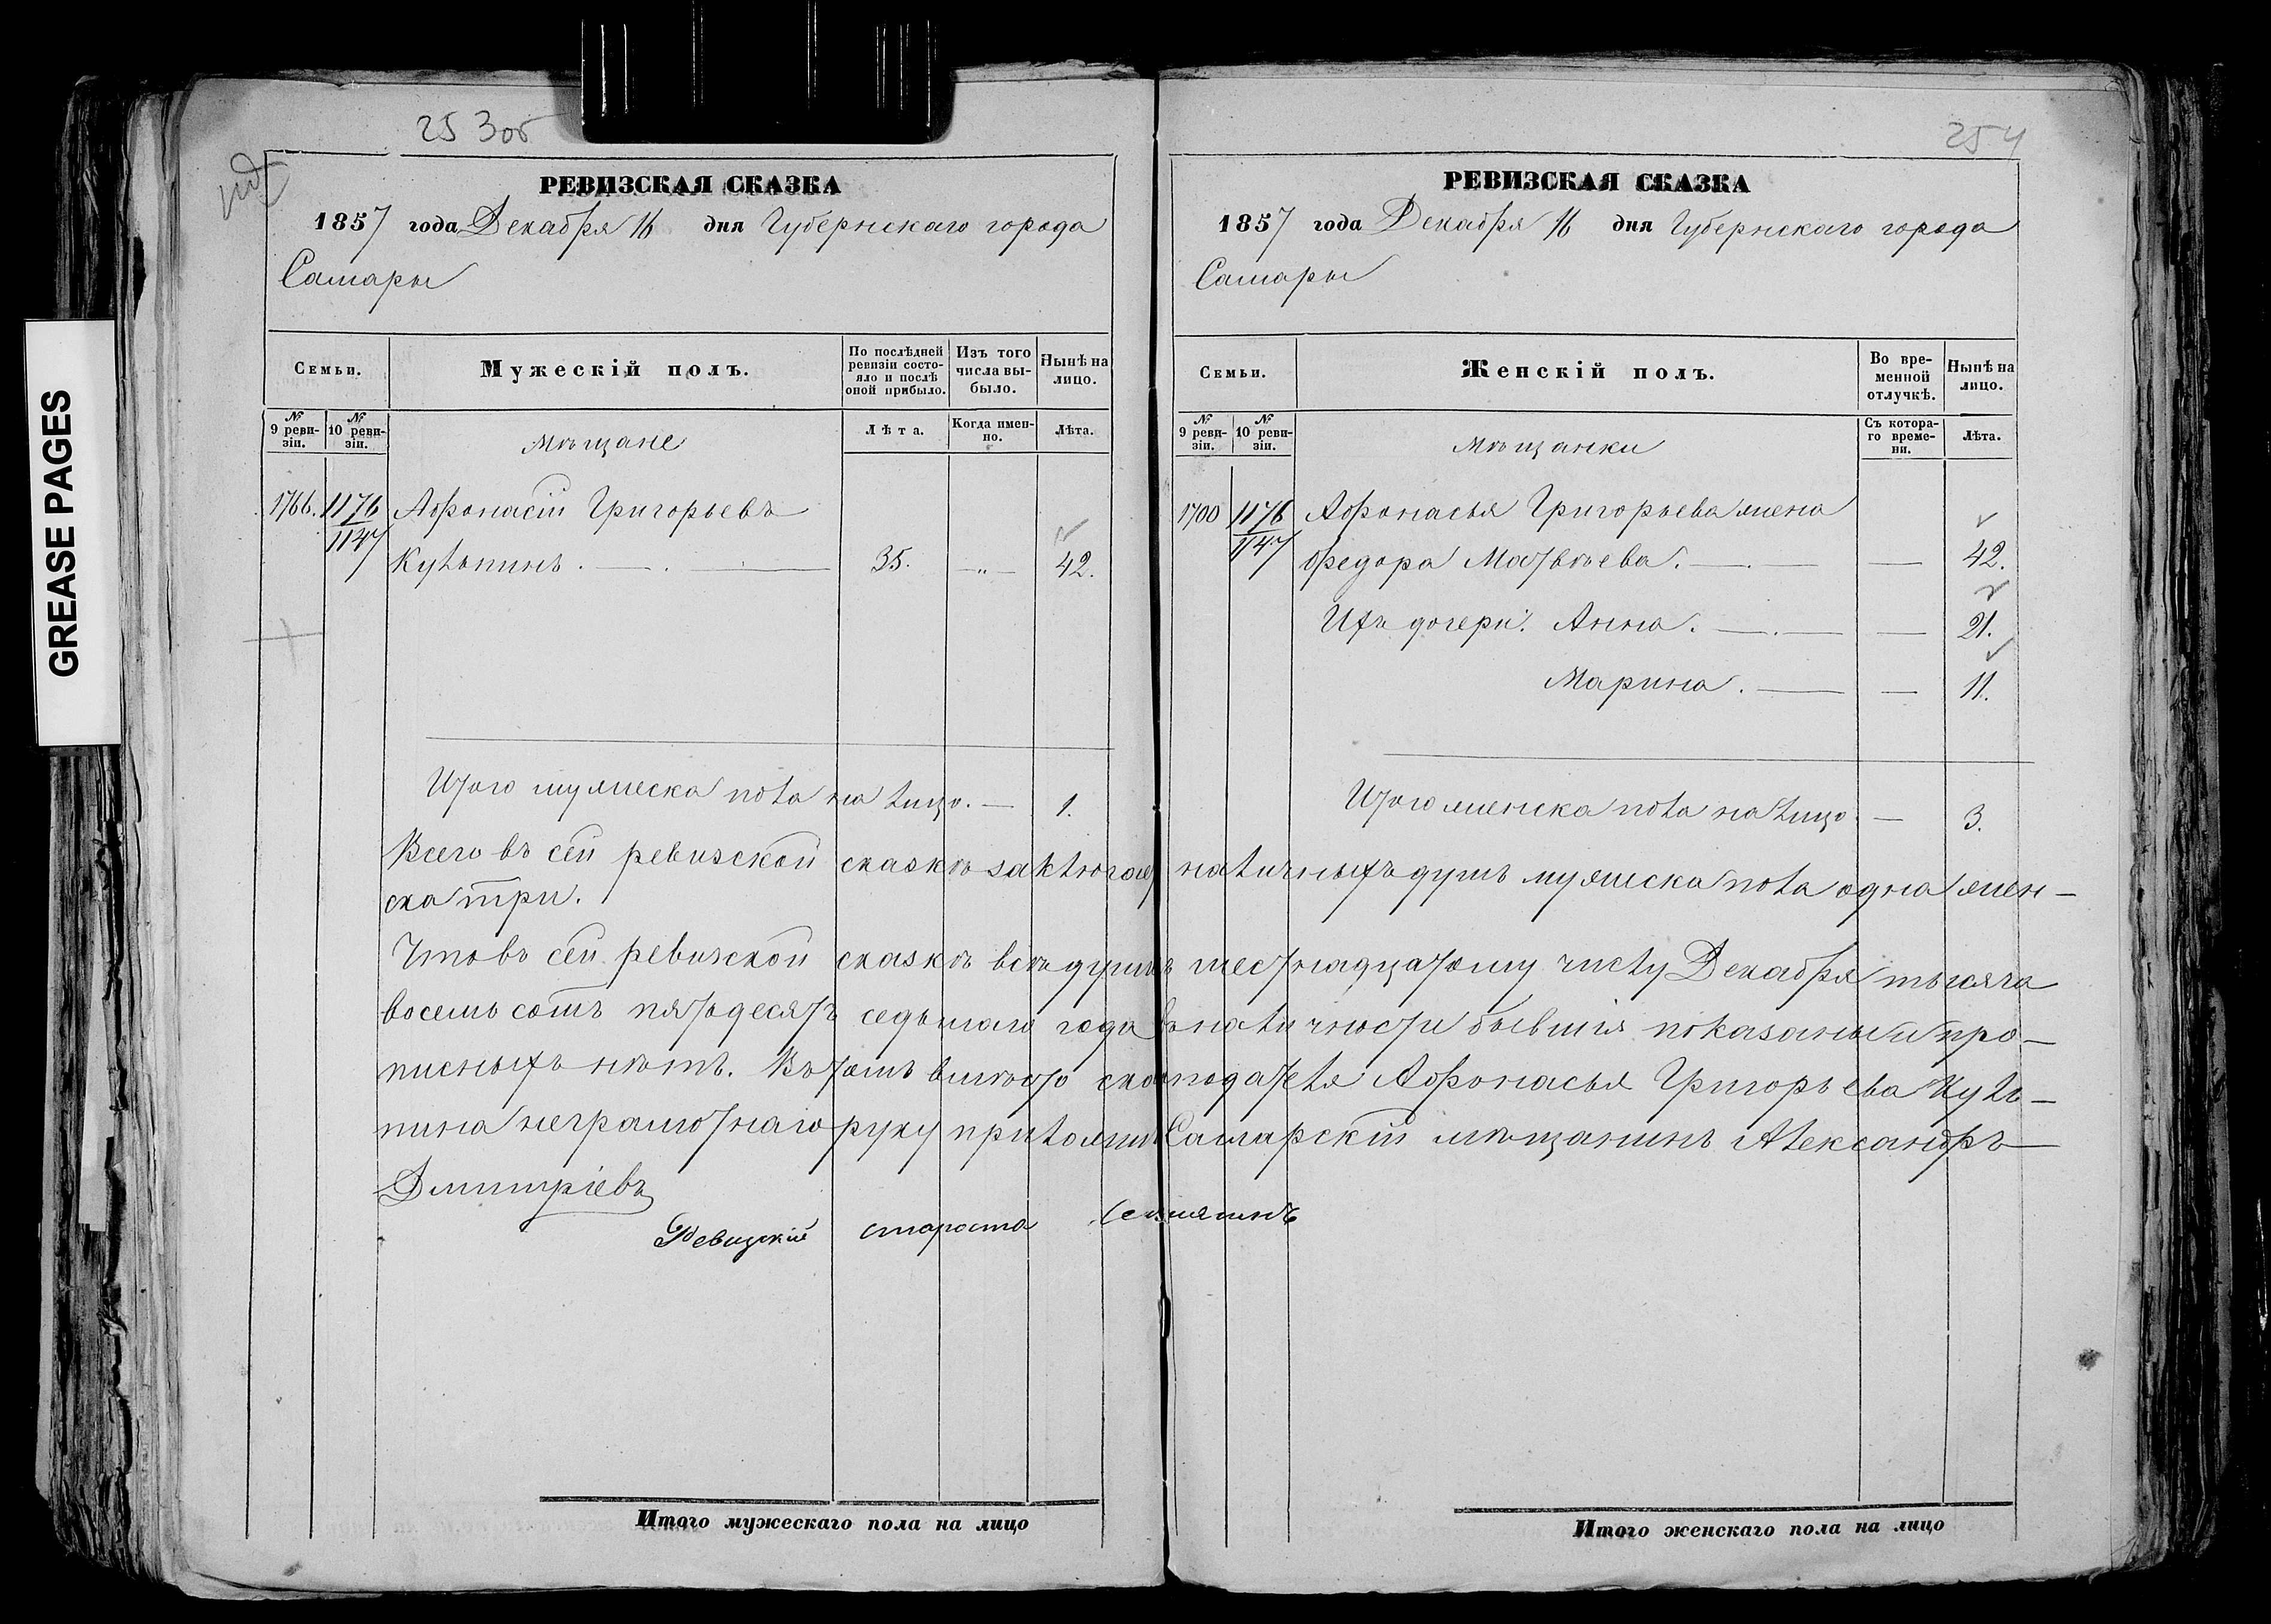 GREASE PAGES
253об
РЕВИЗСКАЯ СКАЗКА
1857 года Декабря 16 дня Губернскаго города
Самары
Семьи.
Мужескій полъ.
По послѣдней ревизіи состояло и послѣ оной прибыло.
Изъ того числа выбыло.
Нынѣ на лицо.
№ 9 ревизіи.
№ 10 ревизіи.
мѣщане
Лѣта.
Когда именно.
Лѣта.
1766. 1176 Афонасій Григорьевъ
1147 Кулѣпинъ. — 35. — „ — 42.
Итого мужеска пола на лицо. — 1.
254
РЕВИЗСКАЯ СКАЗКА
1857 года Декабря 16 дня Губернскаго города
Самары
Семьи.
Женскій полъ.
Во временной отлучкѣ.
Нынѣ на лицо.
№ 9 ревизіи.
№ 10 ревизіи.
мѣщанки
Съ котораго времени.
Лѣта.
1700 1176 Афонасья Григорьева жена
1147 Федора Матвѣева. — — 42.
Ихъ дочери: Анна. — — 21.
Марина. — — 11.
Итого женска пола на лицо — 3.
Всего въ сей ревизской сказкѣ заключает наличныхъ душъ мужеска пола одна жен-
ска три.
Что въ сей ревизской сказкѣ всѣ душы шестнадцатому числу Декабря тысяча
восемь сотъ пятьдесятъ седьмаго года въ наличности бывшія показаны и про-
писныхъ нѣтъ. Въ томъ вмѣсто сказкоподателя Афонасья Григорьева Кулѣ-
пина неграмотнаго руку приложилъ Самарскій мѣщанинъ Александръ
Дмитріевъ
Ревизскій староста
Итого мужескаго пола на лицо
Итого женскаго пола на лицо